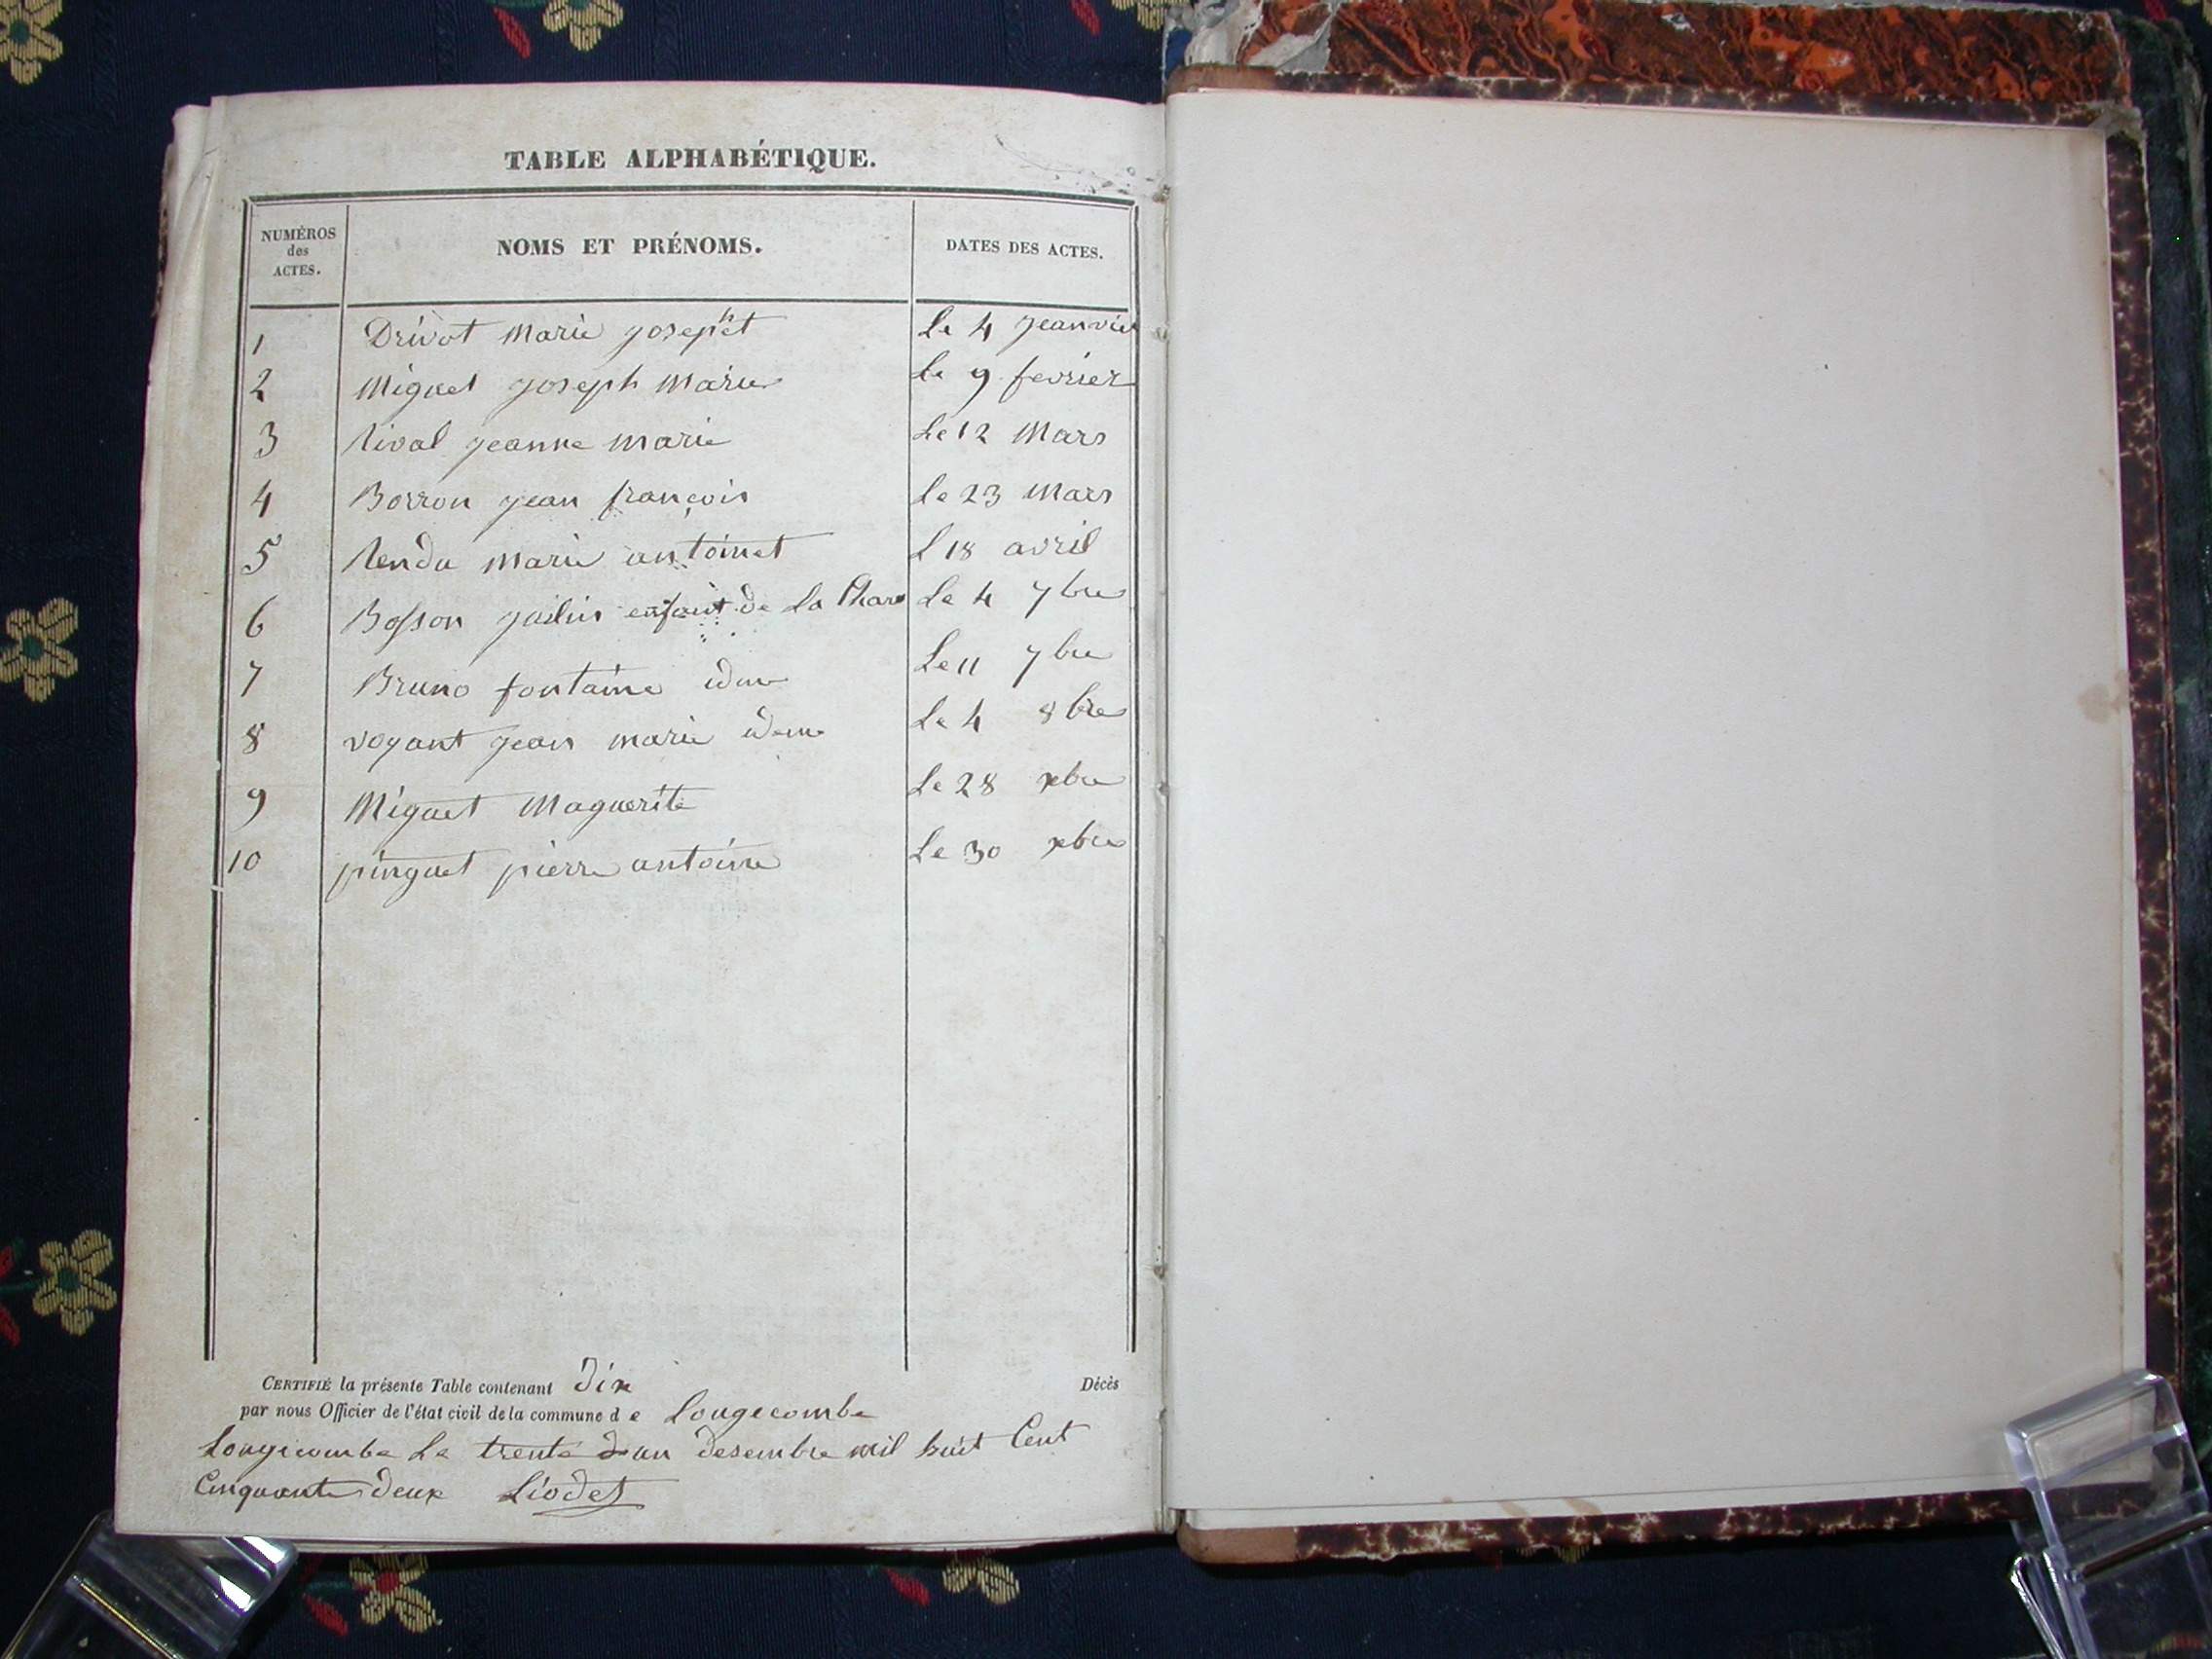 TABLE ALPHABÉTIQUE.
NUMÉROS des ACTES. NOMS ET PRÉNOMS. DATES DES ACTES.
1 Drivot Marie josephet Le 4 jeanvier
2 Miguet joseph Marie Le 9 fevrier
3 Rival jeanne marie Le 12 Mars
4 Borron jean françois le 23 Mars
5 Rendu marie antoinet L 18 avril
6 Bosson enfant de La Char Le 4 7bre
7 Bruno fontaine idem Le 11 7bre
8 voyant jean marie idem Le 4 8bre
9 Miguet Maguerite Le 28 xbre
10 pinguet pierre antoine Le 30 xbre
CERTIFIÉ la présente Table contenant dix Décès
par nous Officier de l'état civil de la commune de Longecombe
Longecombe Le trente dun desembre mil huit Cent
Cinquante deux Liodet